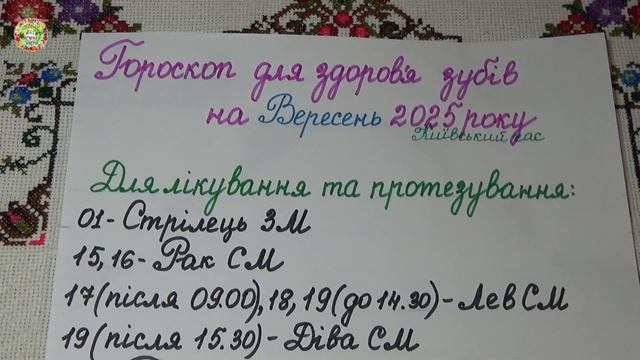 Гороскоп для здоров'я зубів
на Вересень 2025 року
Київський час
Для лікування та протезування:
01- Стрілець ЗМ
15, 16- Рак СМ
17(після 09.00), 18, 19(до 14.30)- Лев СМ
19(після 15.30)- Діва СМ